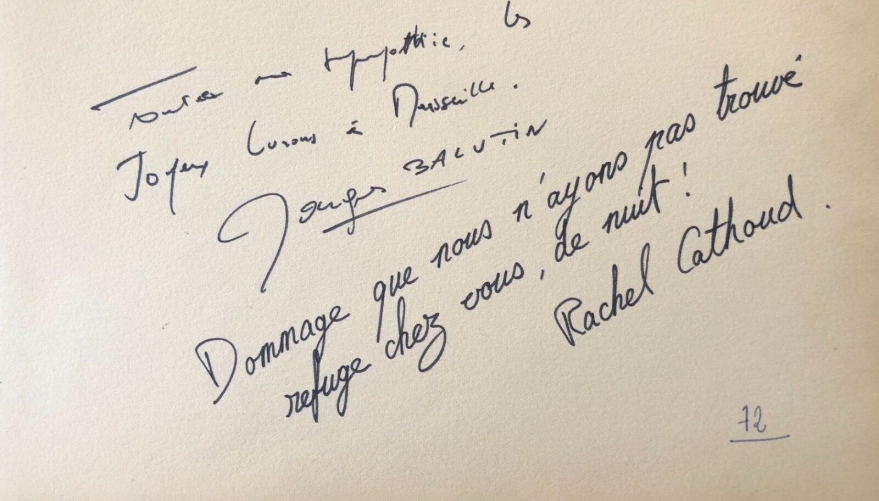 Toute ma sympathie, les
Joyeux Lurons à Marseille.
Georges BALUTIN
Dommage que nous n'ayons pas trouvé
refuge chez vous, de nuit !
Rachel Cathoud.
72